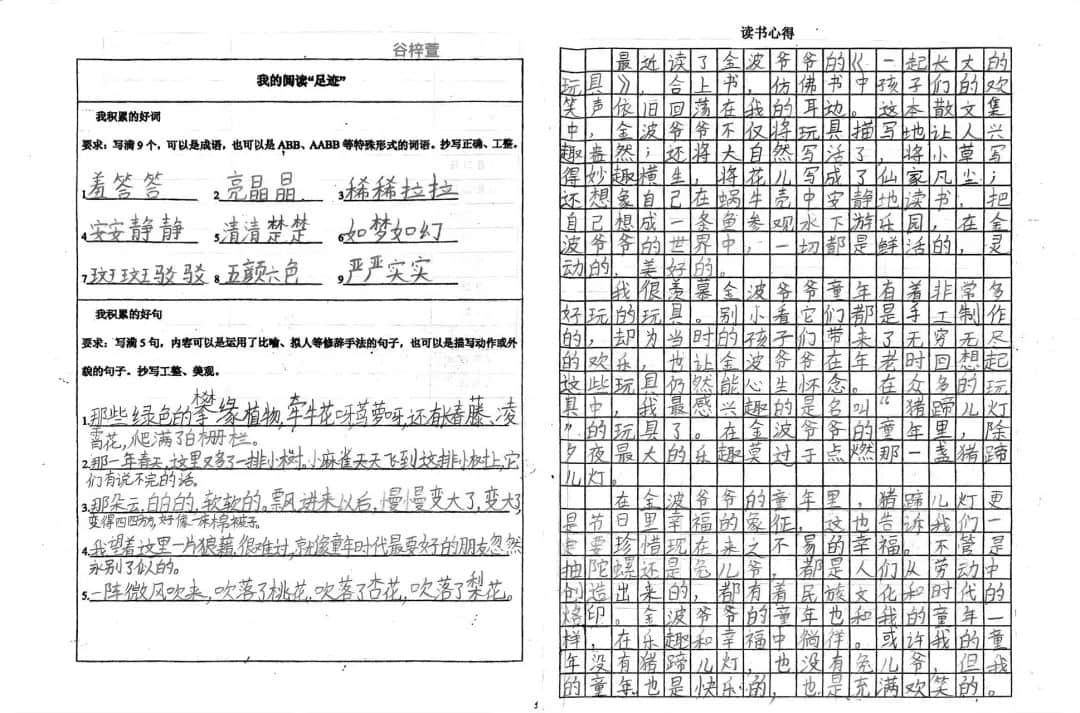 谷梓萱
我的阅读“足迹”
我积累的好词
要求：写满9个，可以是成语，也可以是ABB、AABB等特殊形式的词语。抄写正确、工整。
1.羞答答 2.亮晶晶 3.稀稀拉拉
4.安安静静 5.清清楚楚 6.如梦如幻
7.斑斑驳驳 8.五颜六色 9.严严实实
我积累的好句
要求：写满5句，内容可以是运用了比喻、拟人等修辞手法的句子，也可以是描写动作或外
貌的句子。抄写工整、美观。
1.那些绿色的攀缘植物,牵牛花呀茑萝呀,还有长春藤、凌
霄花,爬满了白栅栏。
2.那一年春天,这里又多了一排小树。小麻雀天天飞到这排小树上,它
们有说不完的话。
3.那朵云,白白的,软软的。飘进来以后,慢慢变大了,变大了
变得四四方方,好像一床棉被子。
4.我望着这里一片狼藉,很难过,就像童年时代最要好的朋友忽然
永别了似的。
5.一阵微风吹来,吹落了桃花,吹落了杏花,吹落了梨花。
读书心得
最近读了金波爷爷的《一起长大的
玩具》，合上书，仿佛书中孩子们的欢
笑声依旧回荡在我的耳边。这本散文集
中，金波爷爷不仅将玩具描写地让人兴
趣盎然；还将大自然写活了，将小草写
得妙趣横生，将花儿写成了仙家凡尘；
还想象自己在蜗牛壳中安静地读书，把
自己想成一条鱼参观水下游乐园，在金
波爷爷的世界中，一切都是鲜活的，灵
动的，美好的。
我很羡慕金波爷爷童年有着非常多
好玩的玩具。别小看它们都是手工制作
的，却为当时的孩子们带来了无穷无尽
的欢乐，也让金波爷爷在年老时回想起
这些玩具仍然能心生怀念。在众多的玩
具中，我最感兴趣的是名叫“猪蹄儿灯
”的玩具了。在金波爷爷的童年里，除
夕夜最大的乐趣莫过于点燃那一盏猪蹄
儿灯。
在金波爷爷的童年里，猪蹄儿灯更
是节日里幸福的象征，这也告诉我们一
定要珍惜现在来之不易的幸福。不管是
抽陀螺还是兔儿爷，都是人们从劳动中
创造出来的，都有着民族文化和时代的
烙印。金波爷爷的童年也和我的童年一
样，在乐趣和幸福中徜徉。或许我的童
年没有猪蹄儿灯，也没有兔儿爷，但我
的童年也是快乐的，也是充满欢笑的。